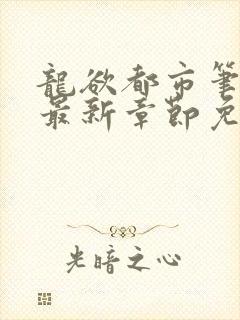 龍欲都市筆
最新章節免
光暗之心